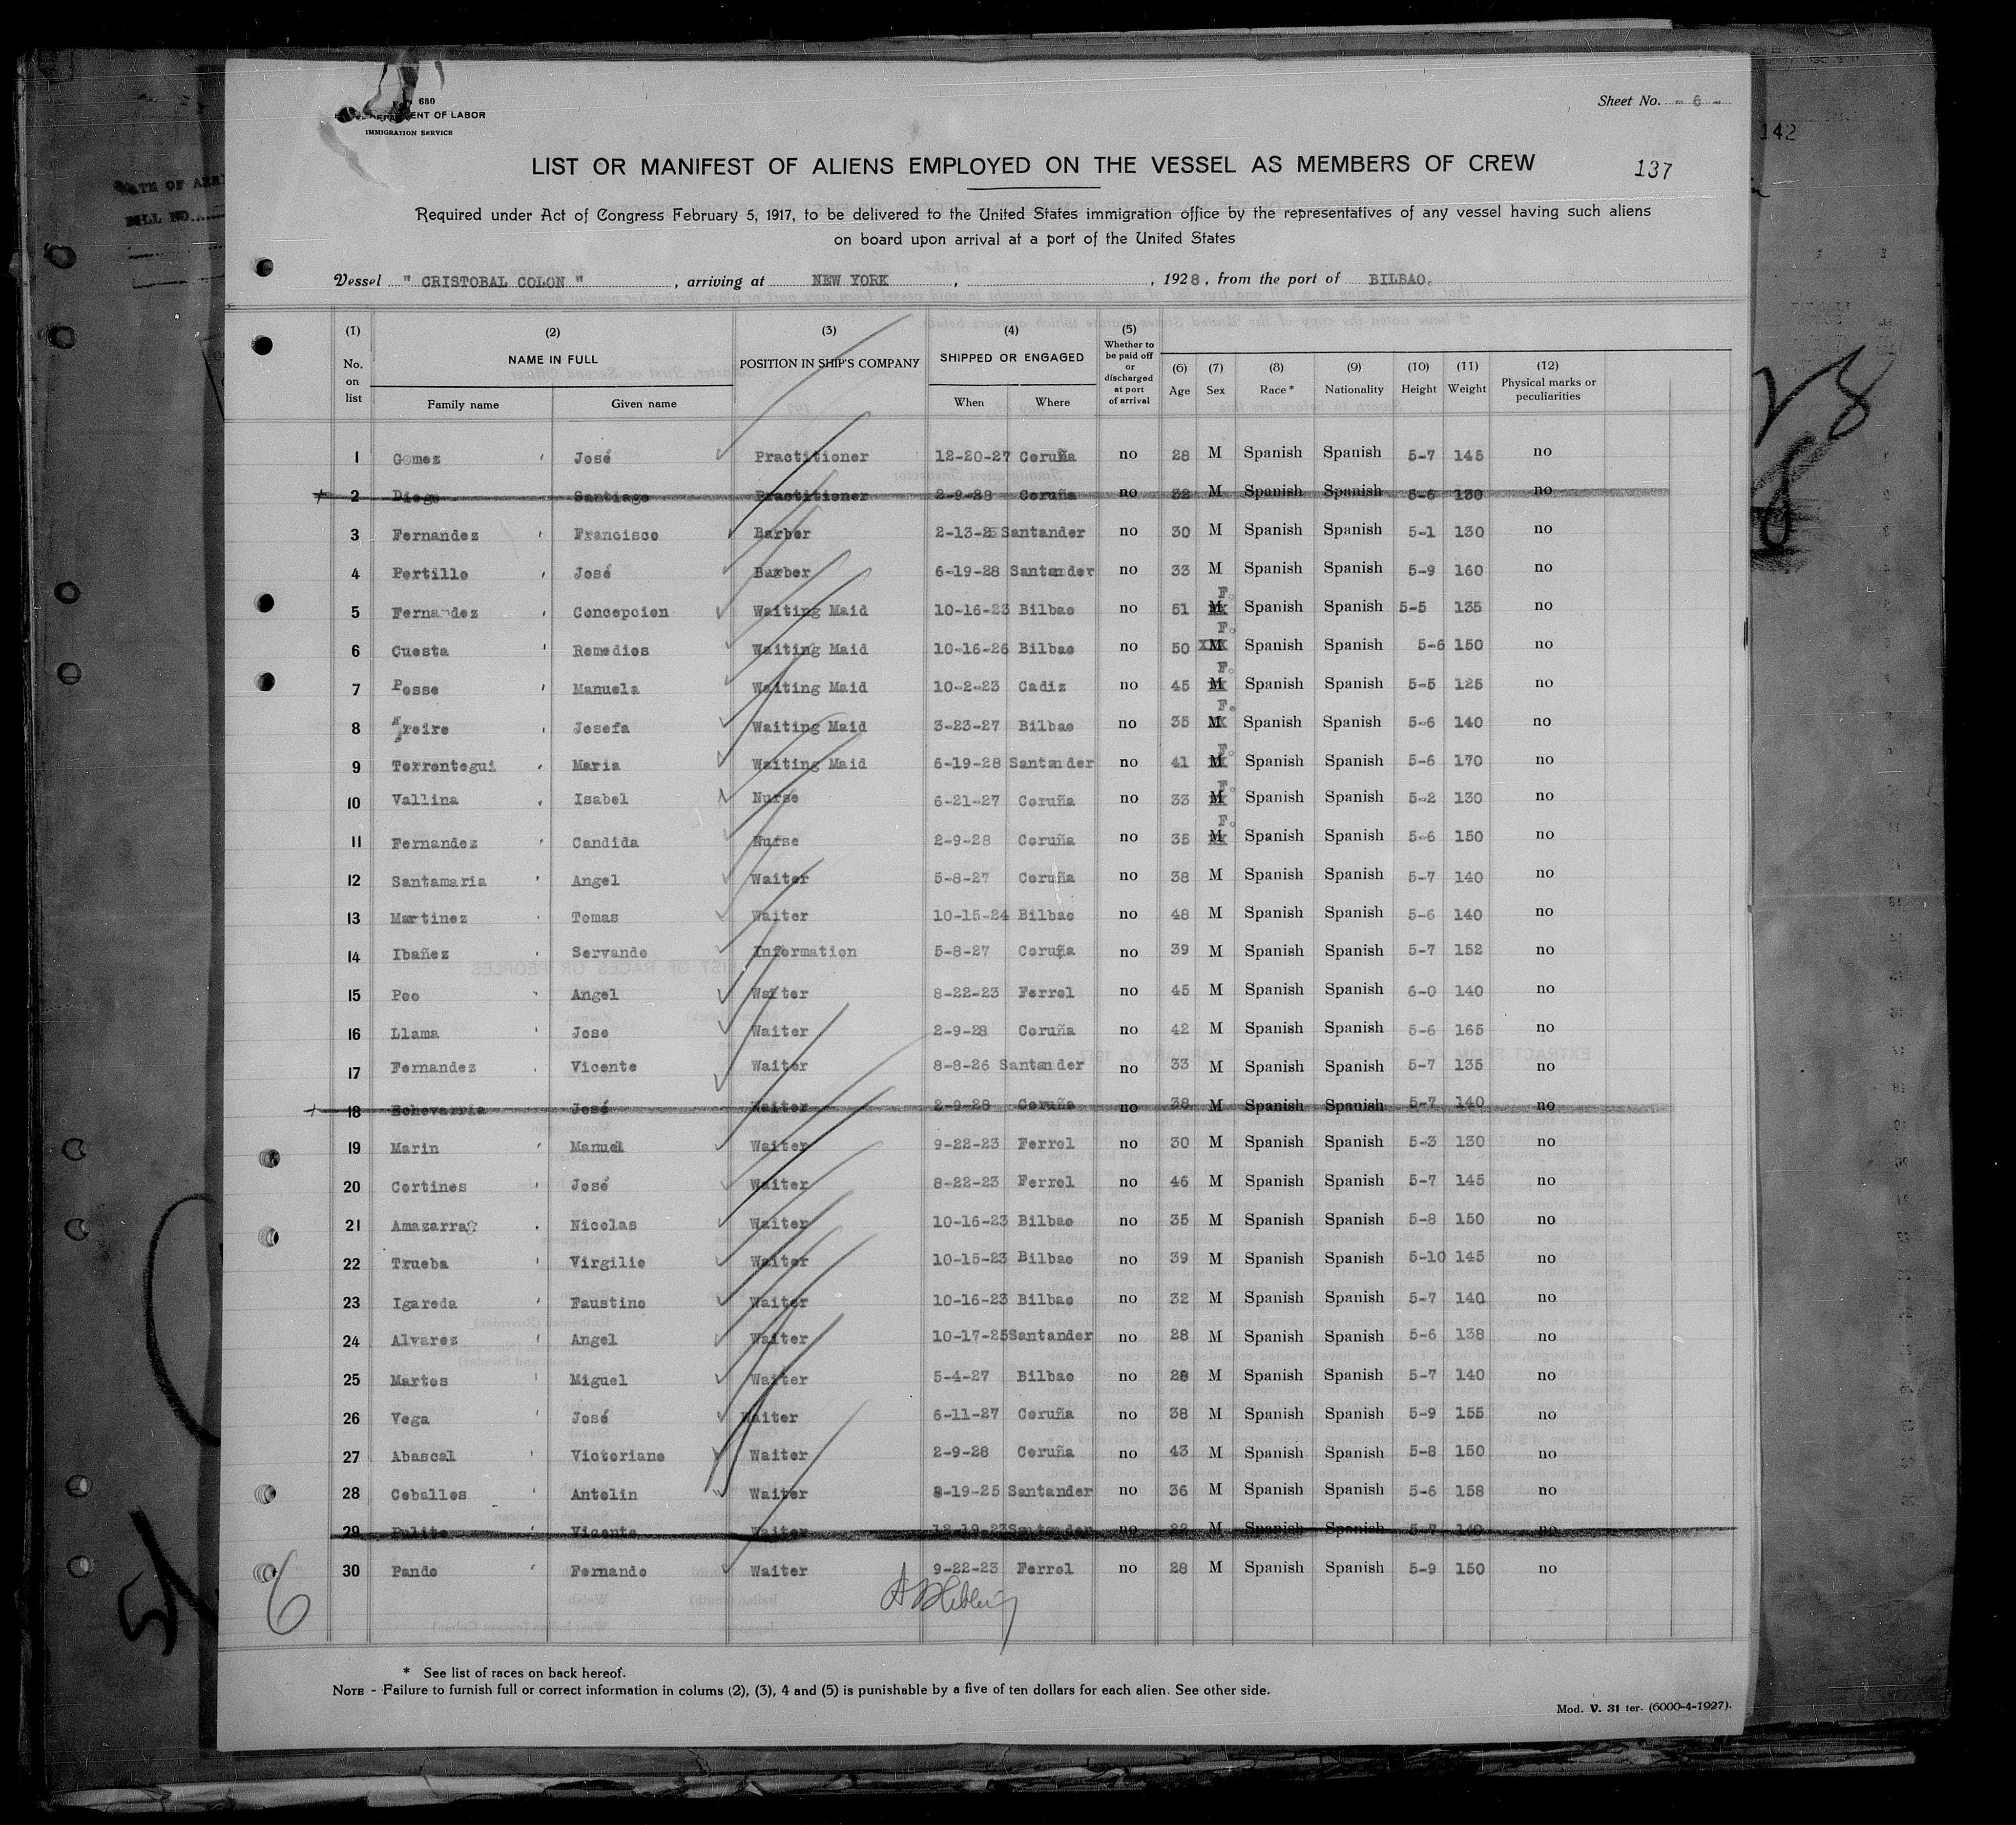 680
DEPARTMENT OF LABOR
IMMIGRATION SERVICE
Sheet No. - 6 -
142
LIST OR MANIFEST OF ALIENS EMPLOYED ON THE VESSEL AS MEMBERS OF CREW
137
Required under Act of Congress February 5, 1917, to be delivered to the United States immigration office by the representatives of any vessel having such aliens
on board upon arrival at a port of the United States
Vessel " CRISTOBAL COLON ", arriving at NEW YORK , , 1928, from the port of BILBAO.
(1) No. on list (2) NAME IN FULL Family name Given name (3) POSITION IN SHIP'S COMPANY (4) SHIPPED OR ENGAGED When Where (5) Whether to be paid off or discharged at port of arrival (6) Age (7) Sex (8) Race * (9) Nationality (10) Height (11) Weight (12) Physical marks or peculiarities
1 Gomez José Practitioner 12-20-27 Coruña no 28 M Spanish Spanish 5-7 145 no
2 Diego Santiago Practitioner 2-9-28 Coruña no 32 M Spanish Spanish 5-6 130 no
3 Fernandez Francisco Barber 2-13-25 Santander no 30 M Spanish Spanish 5-1 130 no
4 Portillo José Barber 6-19-28 Santander no 33 M Spanish Spanish 5-9 160 no
5 Fernandez Concepcion Waiting Maid 10-16-23 Bilbao no 51 M F. Spanish Spanish 5-5 135 no
6 Cuesta Remedios Waiting Maid 10-16-26 Bilbao no 50 M F. Spanish Spanish 5-6 150 no
7 Posse Manuela Waiting Maid 10-2-23 Cadiz no 45 M F. Spanish Spanish 5-5 125 no
8 Freire Josefa Waiting Maid 3-23-27 Bilbao no 35 M F. Spanish Spanish 5-6 140 no
9 Torrontegui Maria Waiting Maid 6-19-28 Santander no 41 M F. Spanish Spanish 5-6 170 no
10 Vallina Isabel Nurse 6-21-27 Coruña no 33 M F. Spanish Spanish 5-2 130 no
11 Fernandez Candida Nurse 2-9-28 Coruña no 35 M F. Spanish Spanish 5-6 150 no
12 Santamaria Angel Waiter 5-8-27 Coruña no 38 M Spanish Spanish 5-7 140 no
13 Martinez Tomas Waiter 10-15-24 Bilbao no 48 M Spanish Spanish 5-6 140 no
14 Ibañez Servando Information 5-8-27 Coruña no 39 M Spanish Spanish 5-7 152 no
15 Poo Angel Waiter 8-22-23 Ferrol no 45 M Spanish Spanish 6-0 140 no
16 Llama Jose Waiter 2-9-28 Coruña no 42 M Spanish Spanish 5-6 165 no
17 Fernandez Vicente Waiter 8-8-26 Santander no 33 M Spanish Spanish 5-7 135 no
18 Echevarria José Waiter 2-9-28 Coruña no 38 M Spanish Spanish 5-7 140 no
19 Marin Manuel Waiter 9-22-23 Ferrol no 30 M Spanish Spanish 5-3 130 no
20 Cortines José Waiter 8-22-23 Ferrol no 46 M Spanish Spanish 5-7 145 no
21 Amazarra Nicolas Waiter 10-16-23 Bilbao no 35 M Spanish Spanish 5-8 150 no
22 Trueba Virgilio Waiter 10-15-23 Bilbao no 39 M Spanish Spanish 5-10 145 no
23 Igareda Faustino Waiter 10-16-23 Bilbao no 32 M Spanish Spanish 5-7 140 no
24 Alvarez Angel Waiter 10-17-25 Santander no 28 M Spanish Spanish 5-6 138 no
25 Martos Miguel Waiter 5-4-27 Bilbao no 28 M Spanish Spanish 5-7 140 no
26 Vega José Waiter 6-11-27 Coruña no 38 M Spanish Spanish 5-9 155 no
27 Abascal Victoriano Waiter 2-9-28 Coruña no 43 M Spanish Spanish 5-8 150 no
28 Ceballos Antolin Waiter 8-19-25 Santander no 36 M Spanish Spanish 5-6 158 no
29 Vicente Waiter 12-19-23 Santander no 22 M Spanish Spanish 5-7 140 no
30 Pando Fernando Waiter 9-22-23 Ferrol no 28 M Spanish Spanish 5-9 150 no
6
* See list of races on back hereof.
NOTE - Failure to furnish full or correct information in colums (2), (3), 4 and (5) is punishable by a five of ten dollars for each alien. See other side.
Mod. V. 31 ter. (6000-4-1927).